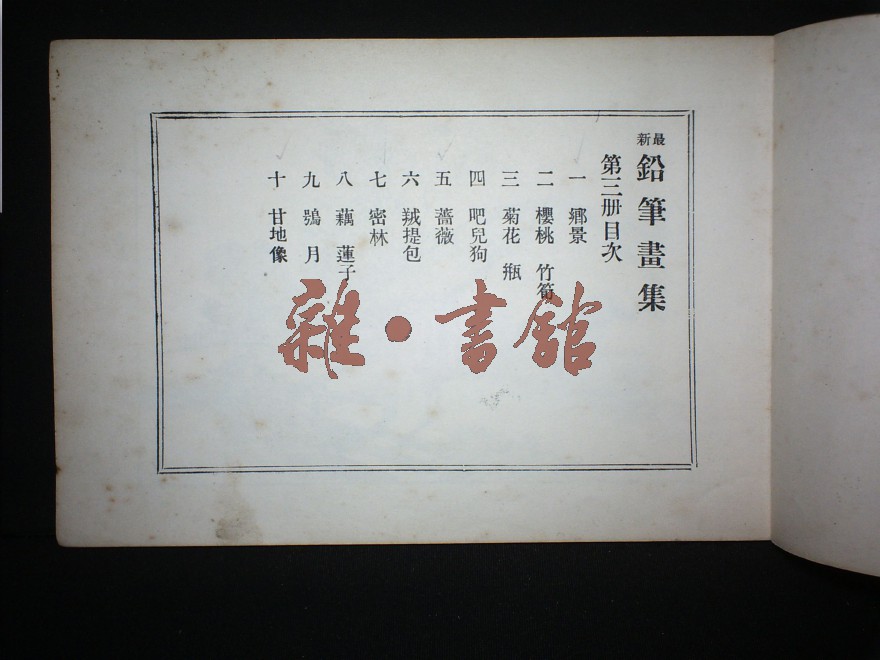 最新
鉛筆畫集
第三册目次
一 鄉景
二 櫻桃 竹筍
三 菊花 瓶
四 吧兒狗
五 薔薇
六 羢提包
七 密林
八 藕 蓮子
九 鴞 月
十 甘地像
雜·書舘